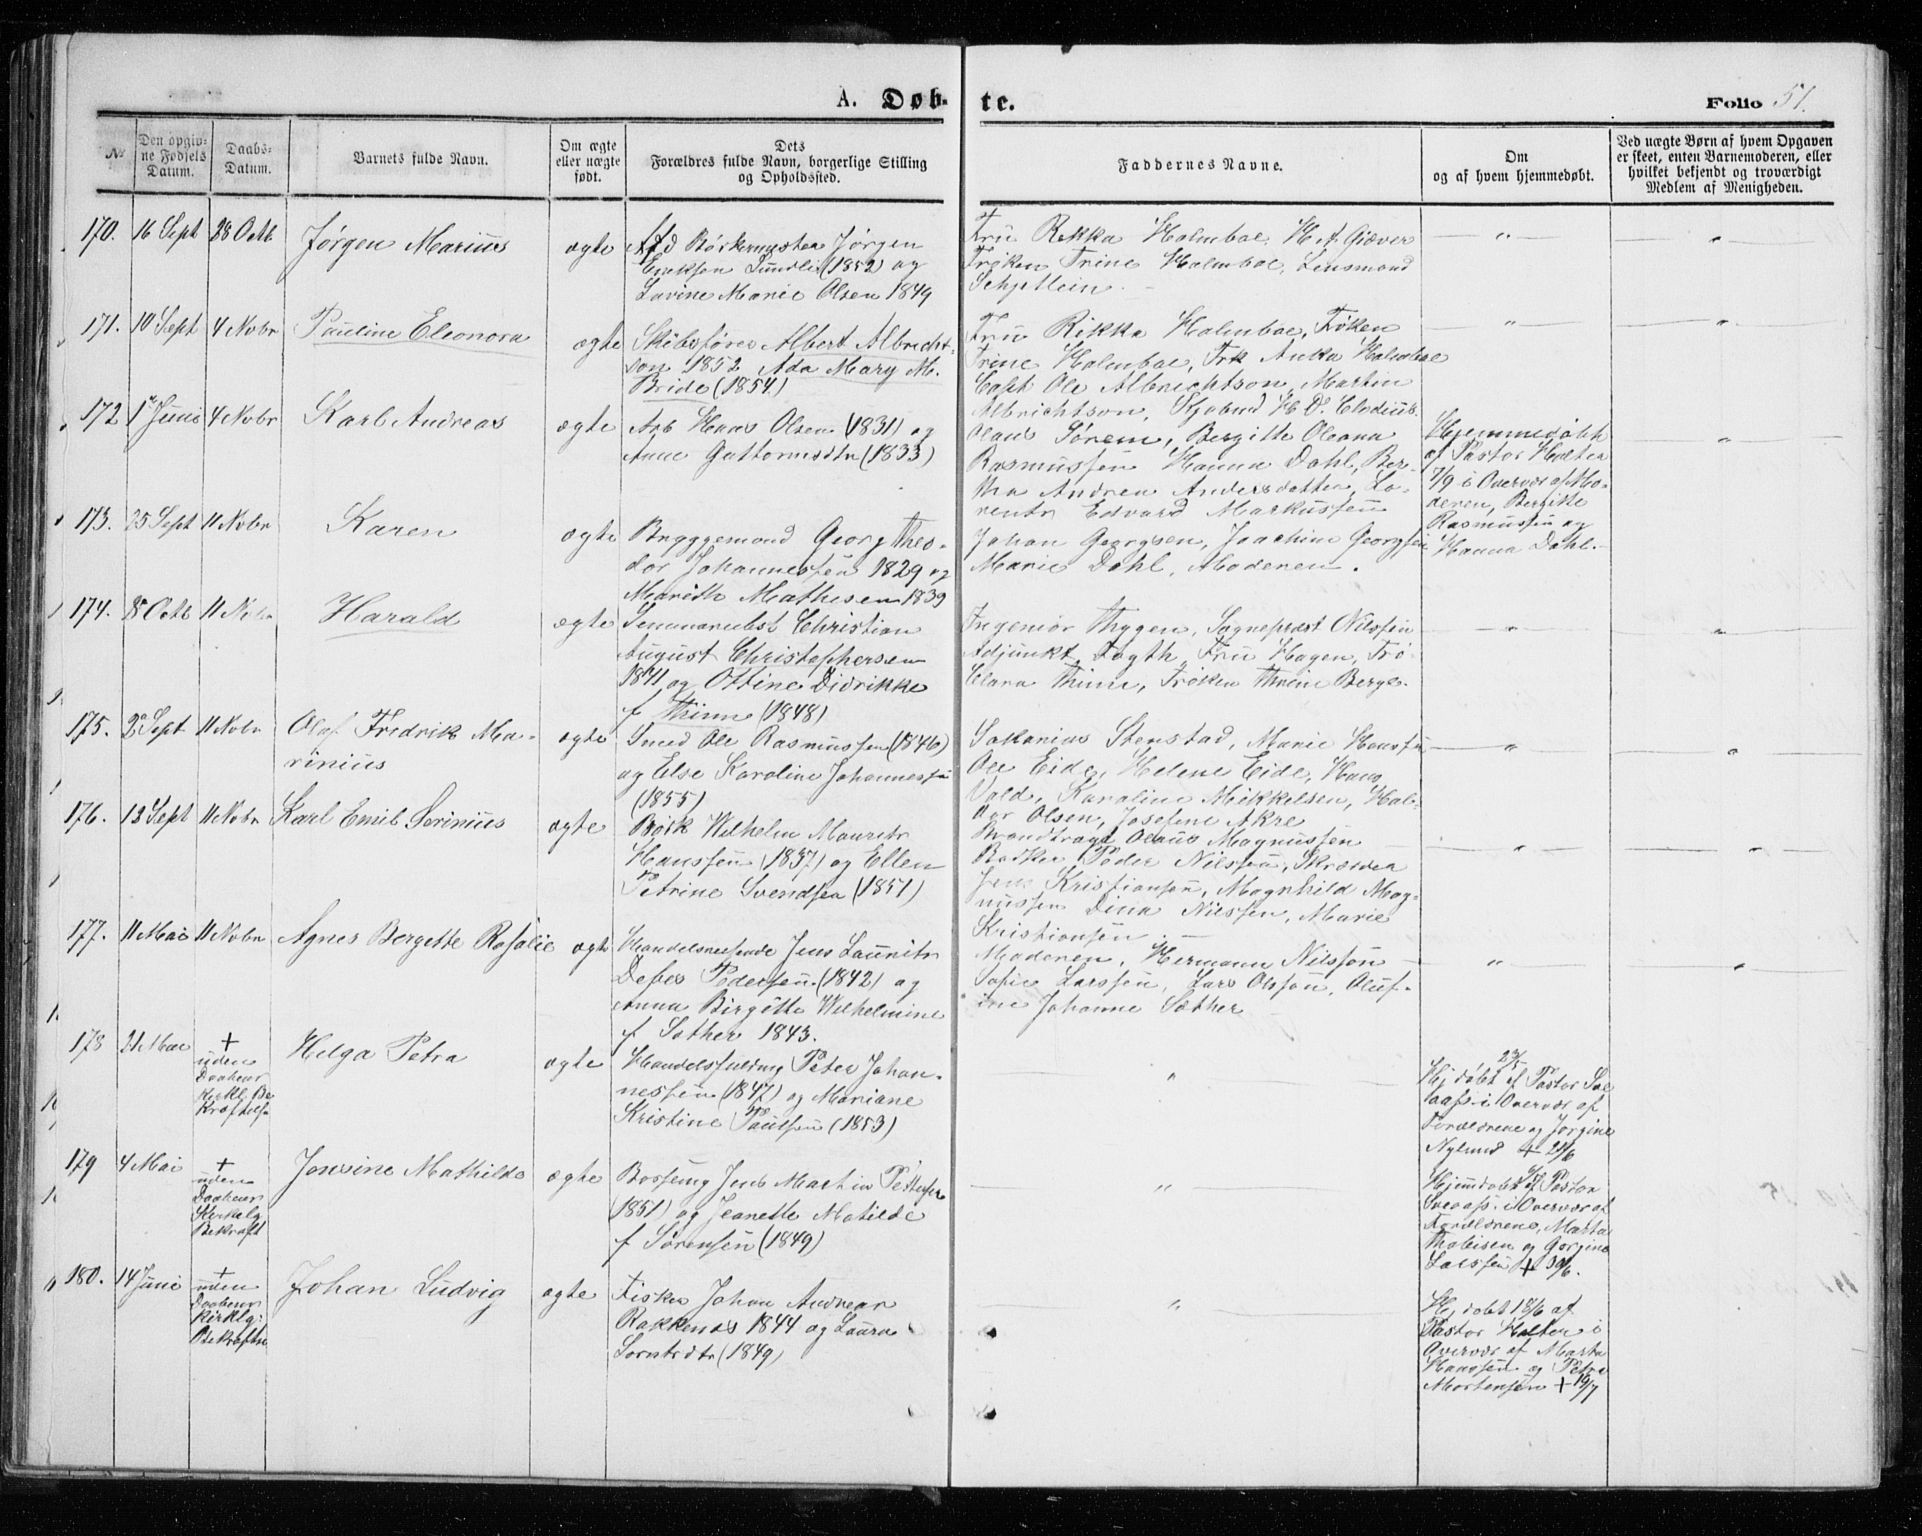 A. Døbte.
Folio 51.
No
Den opgivne Fødsels Datum.
Daabs-Datum.
Barnets fulde Navn.
Om ægte eller uægte født.
Dets Forældres fulde Navn, borgerlige Stilling og Opholdssted.
Faddernes Navne.
Om og af hvem hjemmedøbt.
Ved uægte Børn af hvem Opgaven er skeet, enten Barnemoderen, eller hvilket bekjendt og troværdigt Medlem af Menigheden.
170. 16 Sept 28 Octb Jørgen Marius ægte
Jørgen
Eriksen Sundli (1852) og
Lavine Marie Olsen 1849
Fru Rikka Holmboe, H. A. Giæver
Frøken Trine Holmboe, Lensmand
171. 10 Sept 4 Novbr Pauline Eleonora ægte
Skibsfører Albert Albrecht-
son 1852 Ada Mary M.
Bride (1854)
Fru Rikka Holmboe, Frøken
Trine Holmboe, Frk Anka Holmboe
Capt Ole Albrichtson, Martin
Albrichtson,
172 1 Juni 4 Novbr Karl Andreas ægte
Arb Hans Olsen (1831) og
Anne Guttormsdtr (1833)
Olaus Sørem, Bergitte Oleana
Rasmussen Hanna Dahl, Ber-
tha Andrea Andersdatter, Lo-
rentz Edvard Markussen
Hjemmedøbt
af Pastor Holter
7/9 i Overvær af Mo-
deren, Bergitte
Rasmussen og
Hanna Dahl.
173. 25 Sept 11 Novbr Karen ægte
Bryggemand Georg Theo-
dor Johannessen 1829 og
Mareth Mathisen 1839
Johan Georgsen, Joachim Georgsen
Marie Dahl, Moderen.
174. 8 Octb 11 Novbr Harald ægte
Christian
August Christophersen
1841 og Ottine Didrikke
f Thinn (1848)
Ingeniør Thygen, Sognepræst Nilssen
Adjunkt Fogth, Fru Hagen, Frø
Clara Thinn, Frøken Thrine Berge.
175. 2 Sept 11 Novbr Olaf Fredrik Ma-
rinius ægte
Smed Ole Rasmussen (1846)
og Else Karoline Johannessen
(1855)
Sakarias Stenstad, Marie Hanssen
Ole Eide, Helene Eide, Hans
Vold, Karoline Mikkelsen, Hal-
dor Olsen, Josefine Akre
176. 13 Sept 11 Novbr Karl Emil Serinius ægte
Wilhelm Mauritz
Hanssen (1837) og Ellen
Petrine Svendsen (1851)
Olaus Magnussen
Bødker Peder Nilssen, Skræder
Jens Kristiansen, Magnhild Mag-
nussen Dina Nilssen, Marie
Kristiansen.
177. 11 Mai 11 Novbr Agnes Bergitte Rosalie ægte
Handelsreisende Jens Lauritz
Debes Pedersen (1842) og
Anna Birgitte Wilhelmine
f Sæther 1843.
Moderen, Hermann Nilsson
Sofie Larssen, Lars Olsson, Oluf-
ine Johanne Sæther
178 21 Mai + uden
Daabens
Kirkl. Be
kræftelse
Helga Petra ægte
Peter Johan-
nessen (1847) og Mariane
Kristine Paulsen (1853)
Hj døbt 23/5 af Pastor Sve
aass i Overvær af
Forældrene og Jørgine
Nylund + 21/6
179 4 Mai + uden
Daabens
Kirkelg
Bekræft
Jensine Mathilde ægte
Jens Martin Pettersen
(1851) og Jeanette Matilde
f Sørensen (1849)
Hjemdøbt af Pastor
Sveaass i Overvær af
Forældrene, Marta
Thobisen og Gorgine
Larssen + 30/6.
180. 14 Juni + uden
Daabens
Kirklg:
Bekræftelse
Johan Ludvig ægte
Fisker Johan Andreas
Rakkenæs 1844 og Laura
(1849)
Hj døbt 18/6 af
Pastor Holter i
Overvær af Marta
Hanssen og Petra
Mortensen + 19/7